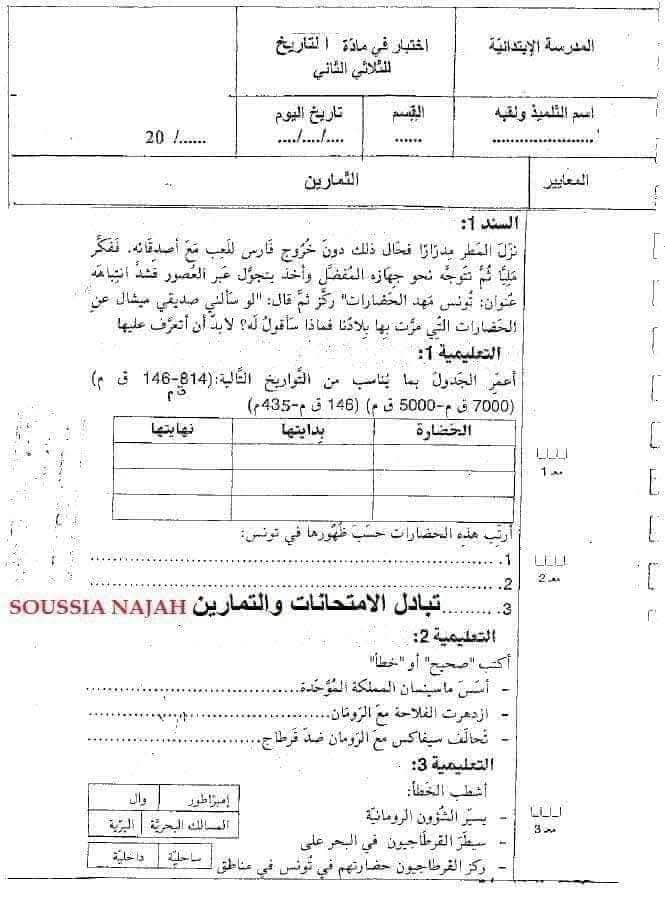 المدرسة الإبتدائيّة
اختبار في مادّة التاريخ
للثلاثي الثاني
اسم التلميذ ولقبه
......................
القسم
......
تاريخ اليوم
..../..../....
20 /......
المعايير
التمارين
السند 1:
نزَلَ المَطر مِدرَارًا فحَال ذلك دونَ خُرُوج فَارس للَعِب مَعَ أصدِقَائه. فَفَكَّر
مَليًّا ثُمَّ تَتَوجَّه نحو جِهازه المُفضَّل وأخذ يتجوَّل عبَر العصُور فشدَّ انتِباهَه
عُنوان: تُونس مَهد الحَضارات" ركَّز ثمَّ قال: "لو سألني صديقي ميشال عنِ
الحَضارات التِّي مرَّت بِها بِلادُنا فماذا سَأقولُ لَه؟ لابدَّ أن أتعرَّف عليها
التعليمية 1:
أعمّر الجَدولَ بما يُناسب من التَّواريخ التَّالية:(814-146 ق م)
ق م
(7000 ق م-5000 ق م) (146 ق م-435م)
الحَضارة
بِدايتها
نهايتها
مع 1
أرتِّب هذه الحضارات حسَبَ ظُهُورها في تونس:
1. ..........................................................
مع 2
2. ..........................................................
3. .......... تبادل الامتحانات والتمارين SOUSSIA NAJAH
التعليمية 2:
أكتب "صحيح" أو "خطأ"
- أسّسَ ماسينسان المملكة المُوَّحّدَة................................
- ازدهرت الفلاحة معَ الرّومَان................................
- تُحالَف سيفاكس معَ الرّومان ضدّ قَرطاج................................
التعليمية 3:
أشطب الخَطأ:
- يسيّر الشُؤون الرومانيّة
إمبراطور
وال
مع 3
- سيطَرَ القرطَاجيون في البحر على
المسالك البحريَّة
البرّية
- ركز القرطاجيون حضارتهم في تُونس في مناطق
ساحليّة
داخليّة